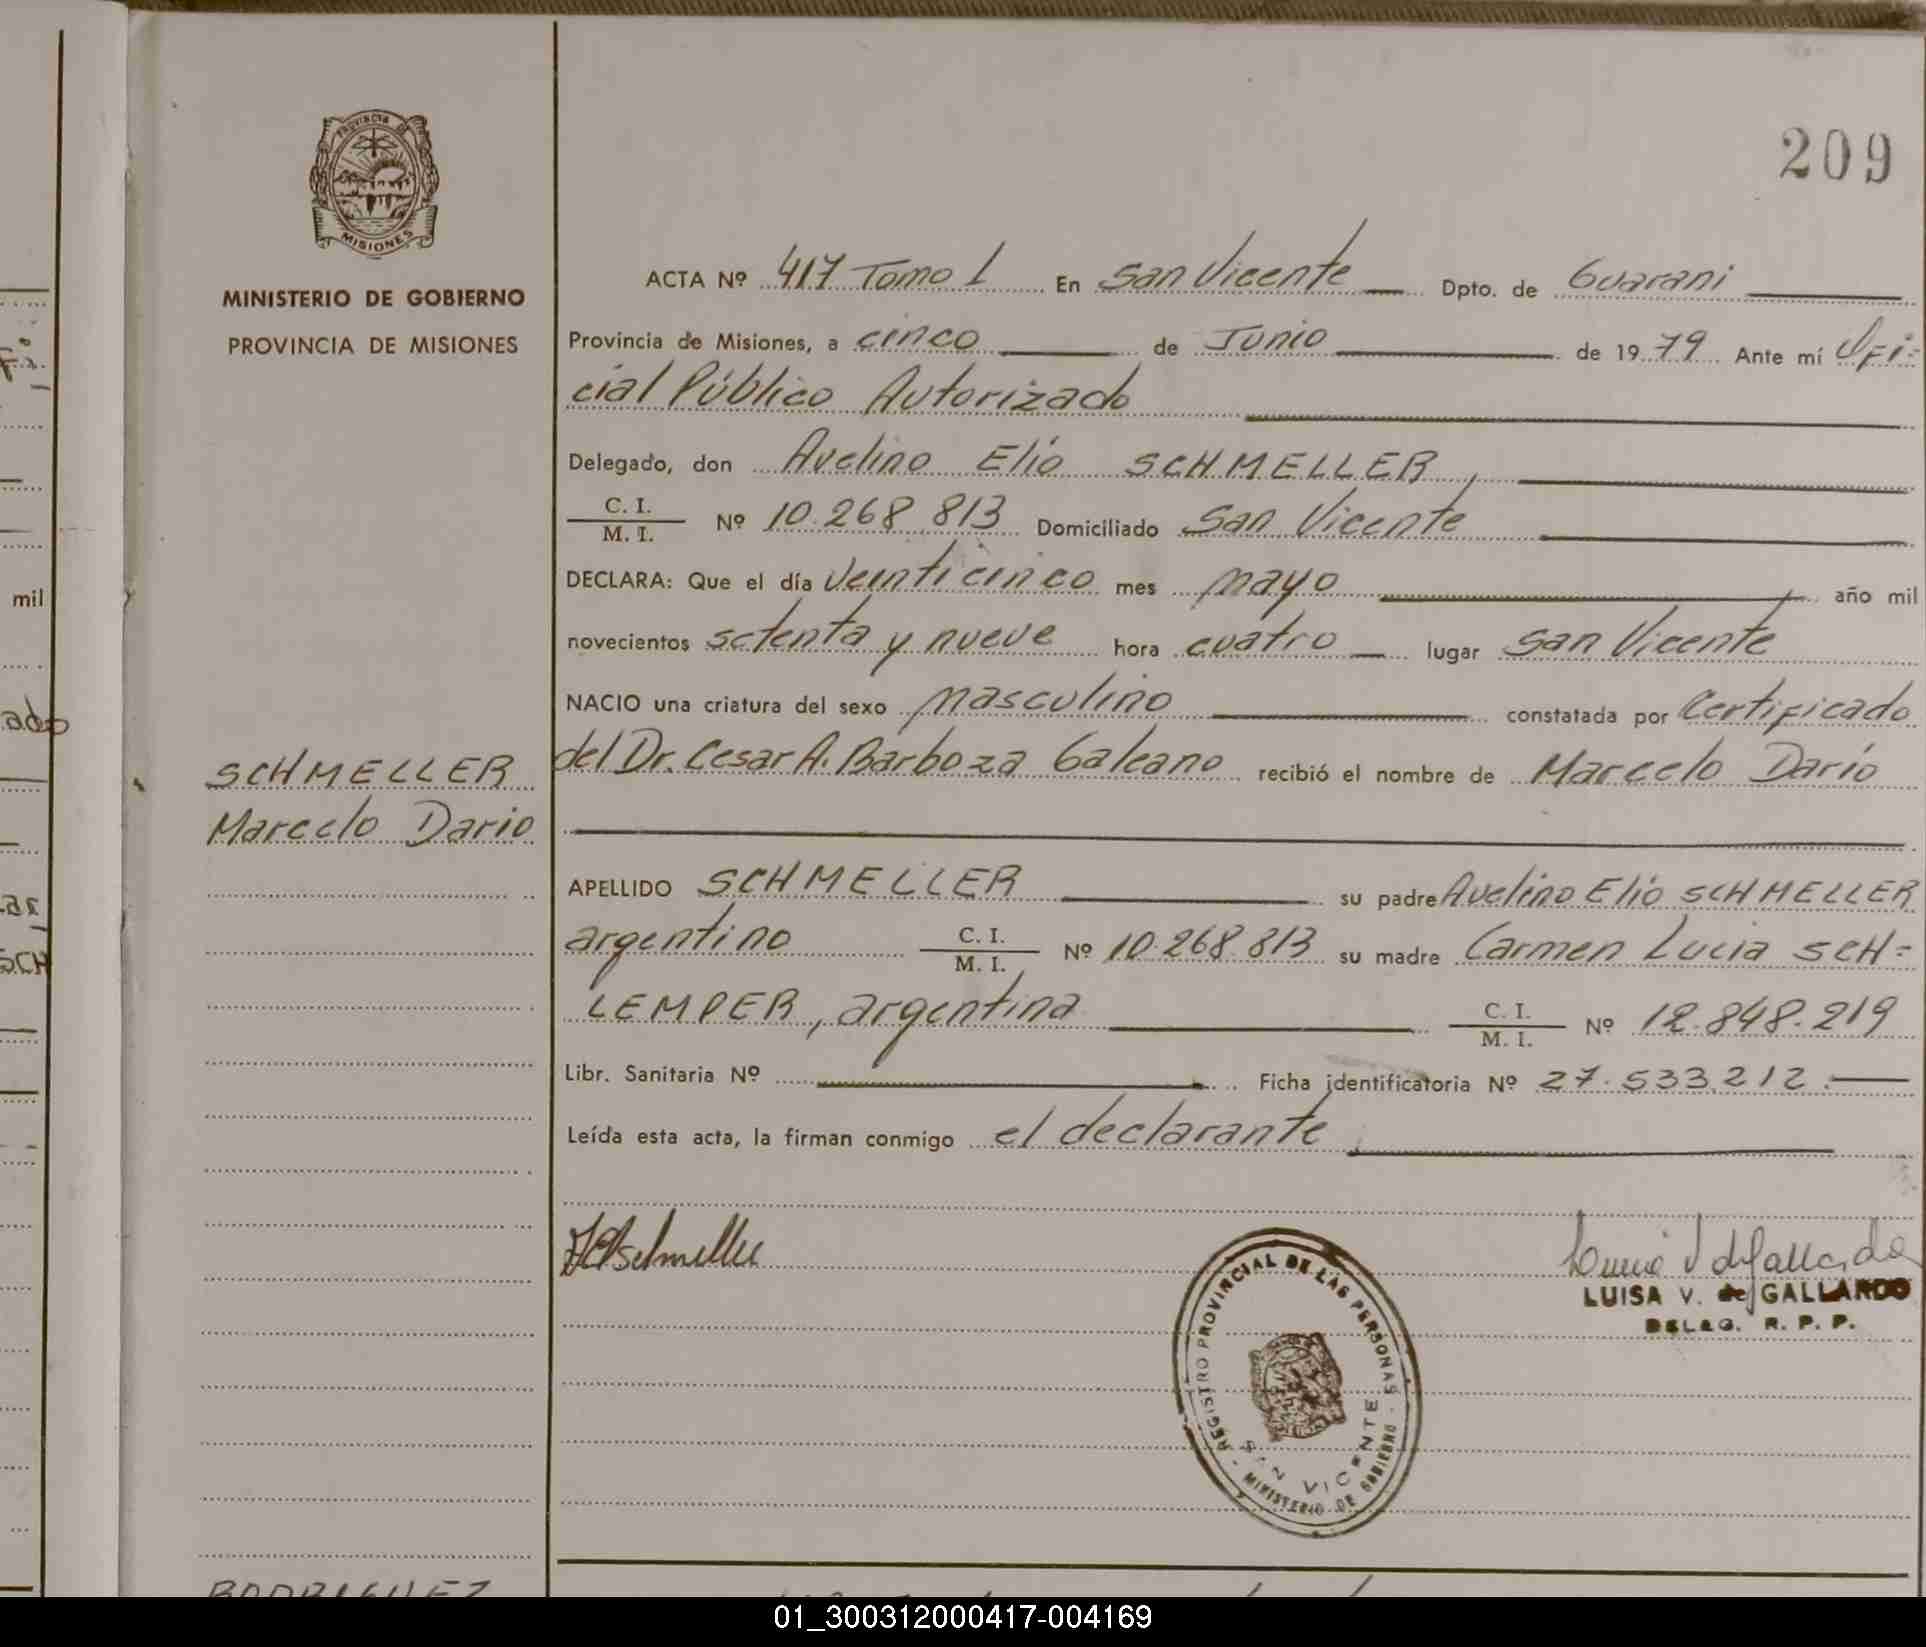 209
PROVINCIA DE
MISIONES
MINISTERIO DE GOBIERNO
PROVINCIA DE MISIONES
ACTA Nº 417 Tomo 1 En San Vicente Dpto. de Guarani
Provincia de Misiones, a cinco de Junio de 1979 Ante mí Ofi=
cial Público Autorizado
Delegado, don Avelino Elio SCHMELLER,
C. I.
M. I. Nº 10.268.813 Domiciliado San Vicente
DECLARA: Que el día veinticinco mes mayo año mil
novecientos setenta y nueve hora cuatro lugar San Vicente
NACIO una criatura del sexo masculino constatada por Certificado
del Dr. Cesar A. Barboza Galeano recibió el nombre de Marcelo Darío
SCHMELLER
Marcelo Dario
APELLIDO SCHMELLER su padre Avelino Elio SCHMELLER
argentino C. I.
M. I. Nº 10.268.813 su madre Carmen Lucia SCH=
LEMPER, argentina C. I.
M. I. Nº 12.848.219
Libr. Sanitaria Nº Ficha identificatoria Nº 27.533.212.
Leída esta acta, la firman conmigo el declarante,
LUISA V. de GALLARDO
DELEG. R. P. P.
REGISTRO PROVINCIAL DE LAS PERSONAS
SAN VICENTE
- MINISTERIO DE GOBIERNO -
mil
RODRIGUEZ
01_300312000417-004169